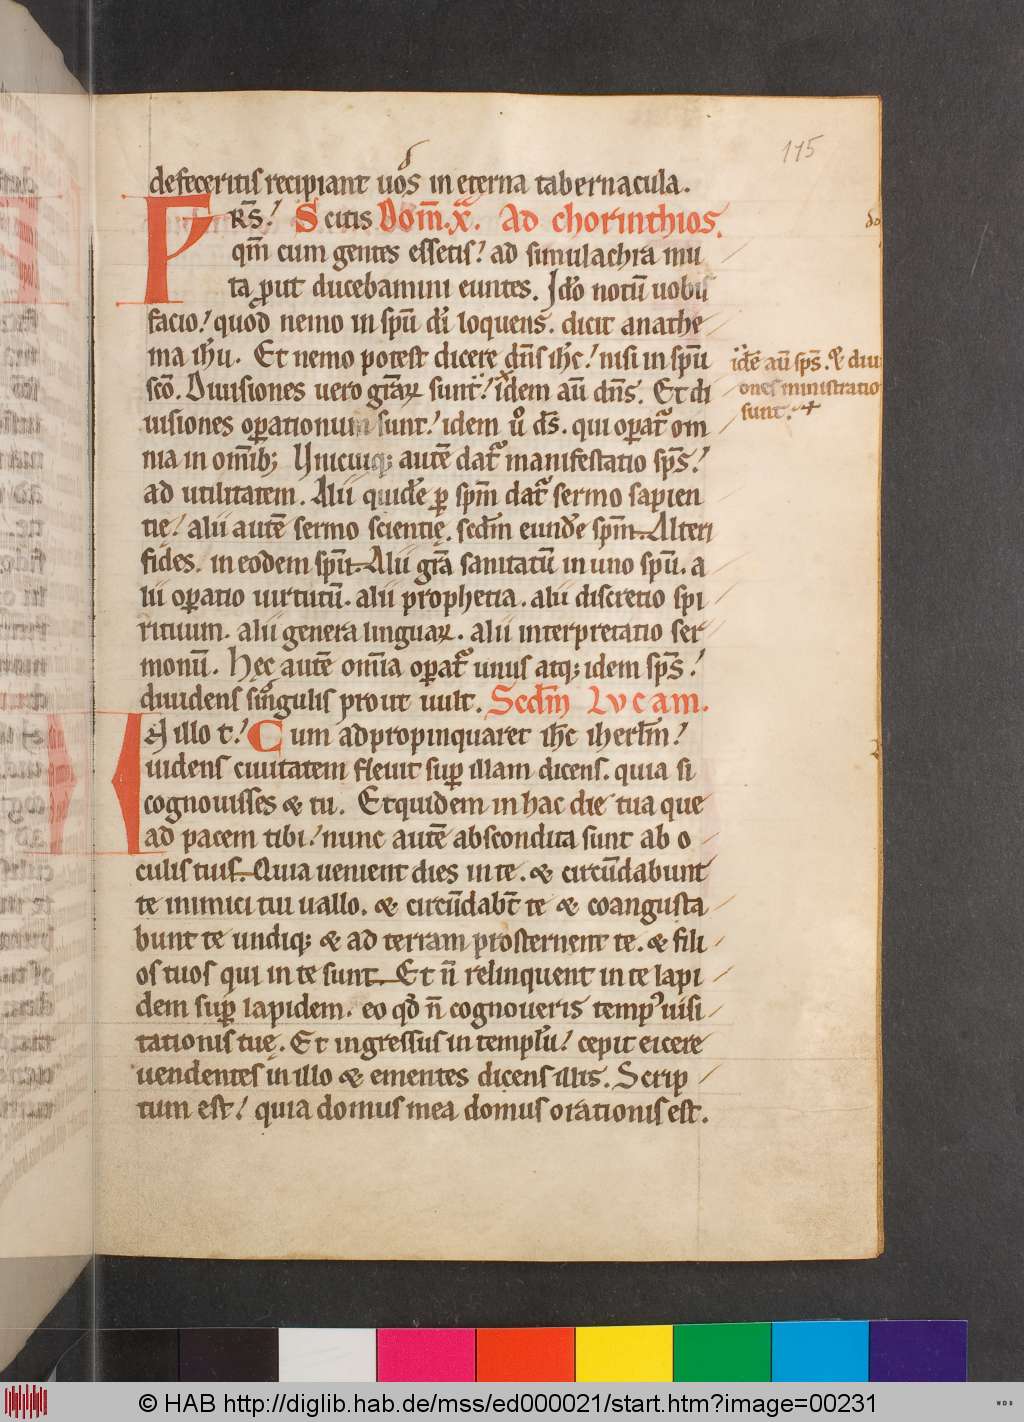 115
defeceritis recipiant uos in eterna tabernacula.
FRS̄! Scitis Dom̄.x̄. Ad chorinthios.
qm̄ cum gentes essetis! ad simulachra mu
ta ꝓut ducebamini euntes. Ido notū uobis
facio! quod nemo in spū dī loquens. dicit anathe
ma ihu. Et nemo potest dicere dn̄s ihc! nisi in spū
sco. Diuisiones uero grarꝝ sunt! idem aū dn̄s. Et di
uisiones oꝑationum sunt! idem u ds̄. qui oꝑat om
nia in omib; Unicuiq; autē dat manifestatio sps̄!
ad utilitatem. Alii quidē ꝑ spm̄ dat sermo sapien
tie! alii autē sermo scientie. scdm̄ eundē spm̄. Alteri
fides. in eodem spū. Alii gr̄a sanitatū in uno spū. a
lii oꝑatio uirtutū. alii prophetia. alii discretio spi
rituum. alii genera linguaꝝ. alii interpretatio ser
monū. Hec autē omīa oꝑat unus atq; idem sps̄!
diuidens singulis prout uult. Scdm̄ Lucam.
IN illo t! Cum adpropinquaret ihc iherlm̄!
uidens ciuitatem fleuit suꝑ illam dicens. quia si
cognouisses & tu. Et quidem in hac die tua que
ad pacem tibi! nunc autē abscondita sunt ab o
culis tuis. Quia uenient dies in te. & circūdabunt
te inimici tui uallo. & circūdabt̄ te & coangusta
bunt te undiq; & ad terram prosternent te. & fili
os tuos qui in te sunt. Et n̄ relinquent in te lapi
dem suꝑ lapidem. eo qd̄ n̄ cognoueris temp⁹ uisi
tationis tue. Et ingressus in templū! cepit eicere
uendentes in illo & ementes dicens illis. Scrip
tum est! quia domus mea domus orationis est.
idē aū sps̄. & diui
ones ministratio
sunt.
© HAB http://diglib.hab.de/mss/ed000021/start.htm?image=00231